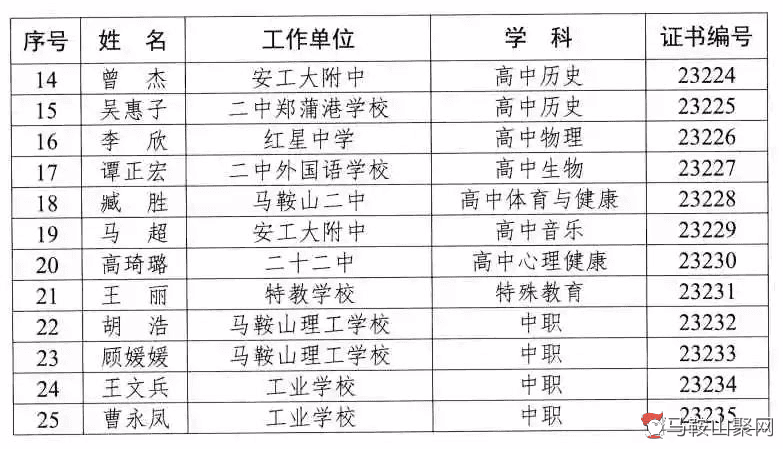 序号 姓 名 工作单位 学 科 证书编号
14 曾 杰 安工大附中 高中历史 23224
15 吴惠子 二中郑蒲港学校 高中历史 23225
16 李 欣 红星中学 高中物理 23226
17 谭正宏 二中外国语学校 高中生物 23227
18 臧 胜 马鞍山二中 高中体育与健康 23228
19 马 超 安工大附中 高中音乐 23229
20 高琦璐 二十二中 高中心理健康 23230
21 王 丽 特教学校 特殊教育 23231
22 胡 浩 马鞍山理工学校 中职 23232
23 顾媛媛 马鞍山理工学校 中职 23233
24 王文兵 工业学校 中职 23234
25 曹永凤 工业学校 中职 23235
马鞍山聚网